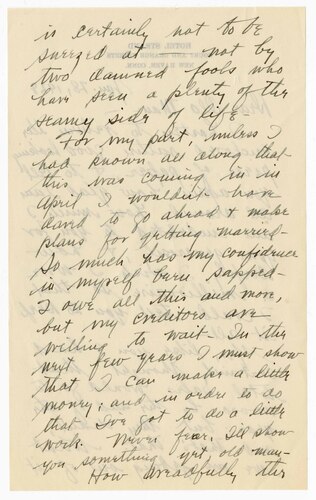 is certainly not to be
sneezed at – not by
two damned fools who
have seen a plenty of the
seamy side of life –
For my part, unless I
had known all along that
this was coming in in
April I wouldn't have
dared to go ahead & make
plans for getting married –
So much has my confidence
in myself been sapped –
I owe all this and more,
but my creditors are
willing to wait – In the
next few years I must show
that I can make a little
money; and in order to do
that I've got to do a little
work. Never fear. I'll show
you something yet, old man –
How dreadfully the